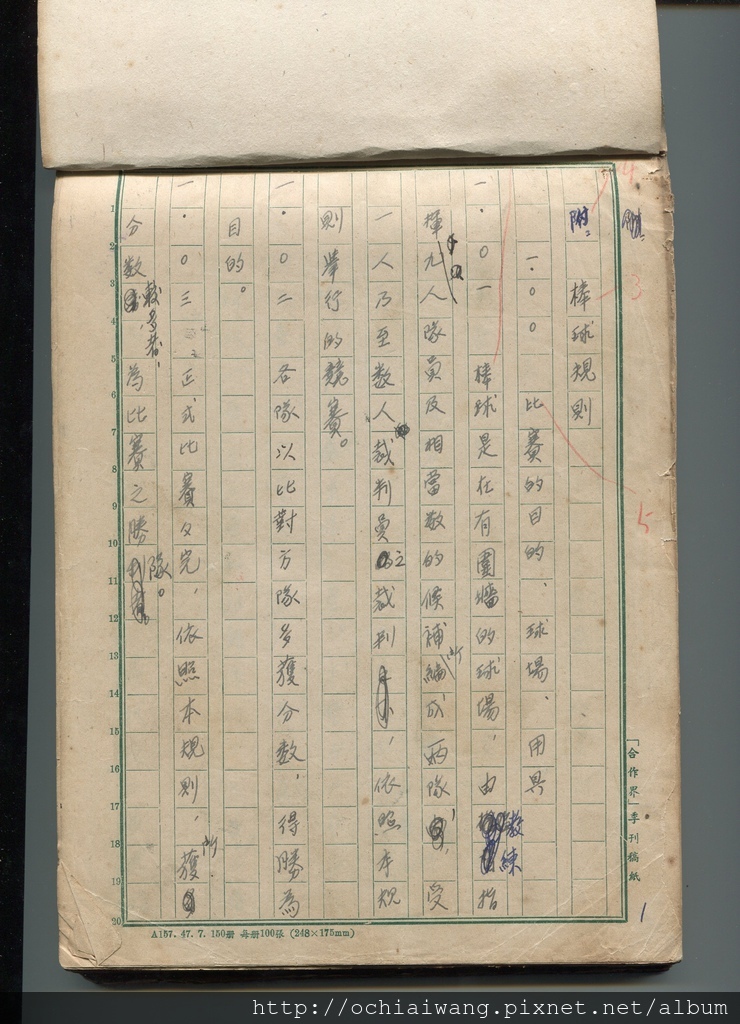 附：
附： 棒球規則
一．００ 比賽的目的、球場、用具
一．０一 棒球是在有圍墻的球場，由教練指
揮九人隊員及相當數的候補所編成兩隊，受
一人乃至數人裁判員之裁判，依照本規
則舉行的競賽。
一．０二 各隊以比對方隊多獲分數，得勝為
目的。
一．０三 正式比賽女完，依照本規則，所獲
分數較多者，為比賽之勝隊。
4
3
5
1
1
2
3
4
5
6
7
8
9
10
11
12
13
14
15
16
17
18
19
20
「合作界」季刊稿紙
A157. 47. 7. 150冊 每冊100張 (248×175mm)
http://ochiaiwang.pixnet.net/album